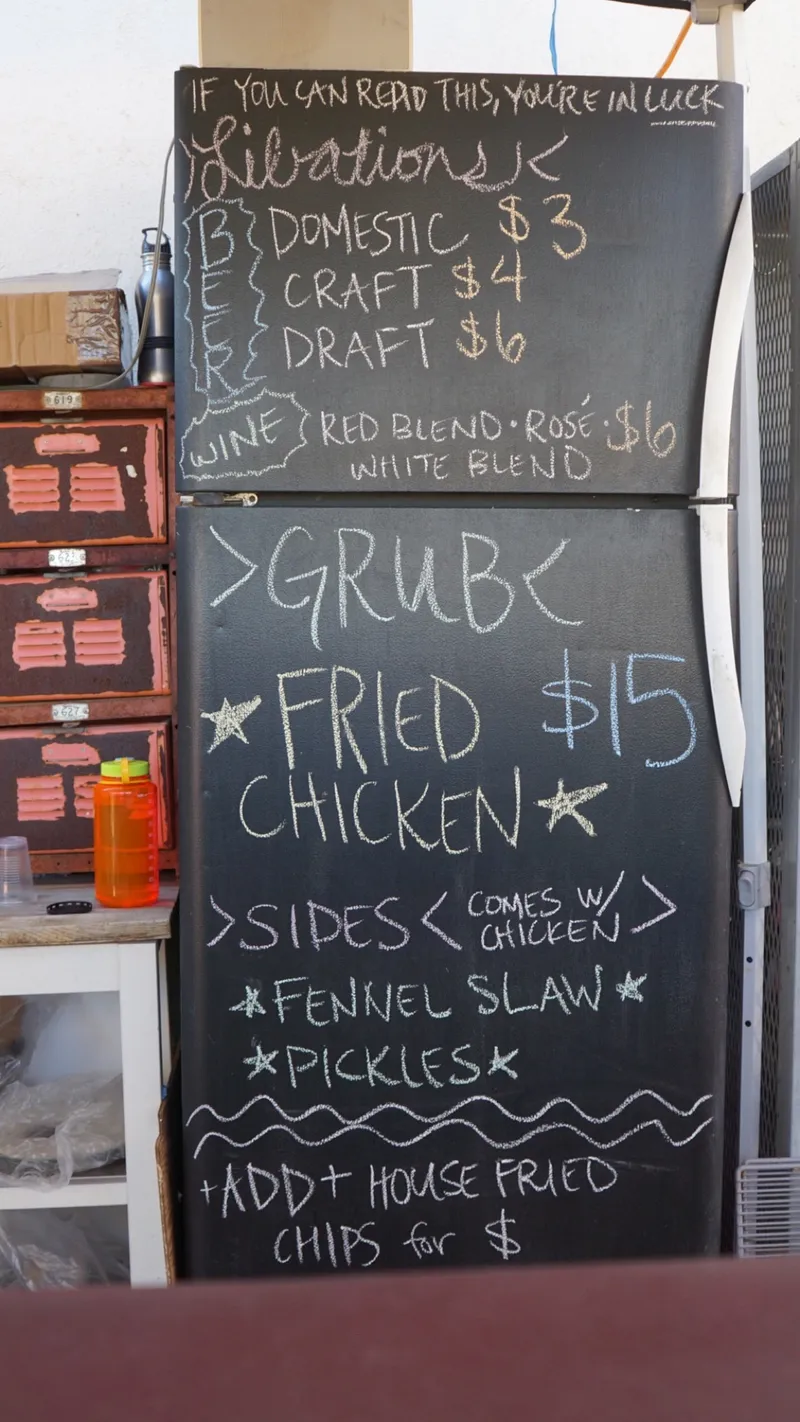 IF YOU CAN READ THIS, YOU'RE IN LUCK
>Libations<
BEER
DOMESTIC $3
CRAFT $4
DRAFT $6
WINE
RED BLEND · ROSÉ · $6
WHITE BLEND
>GRUB<
FRIED $15
CHICKEN
>SIDES< COMES W/ CHICKEN >
FENNEL SLAW
PICKLES
+ADD+ HOUSE FRIED
CHIPS for $
619
627